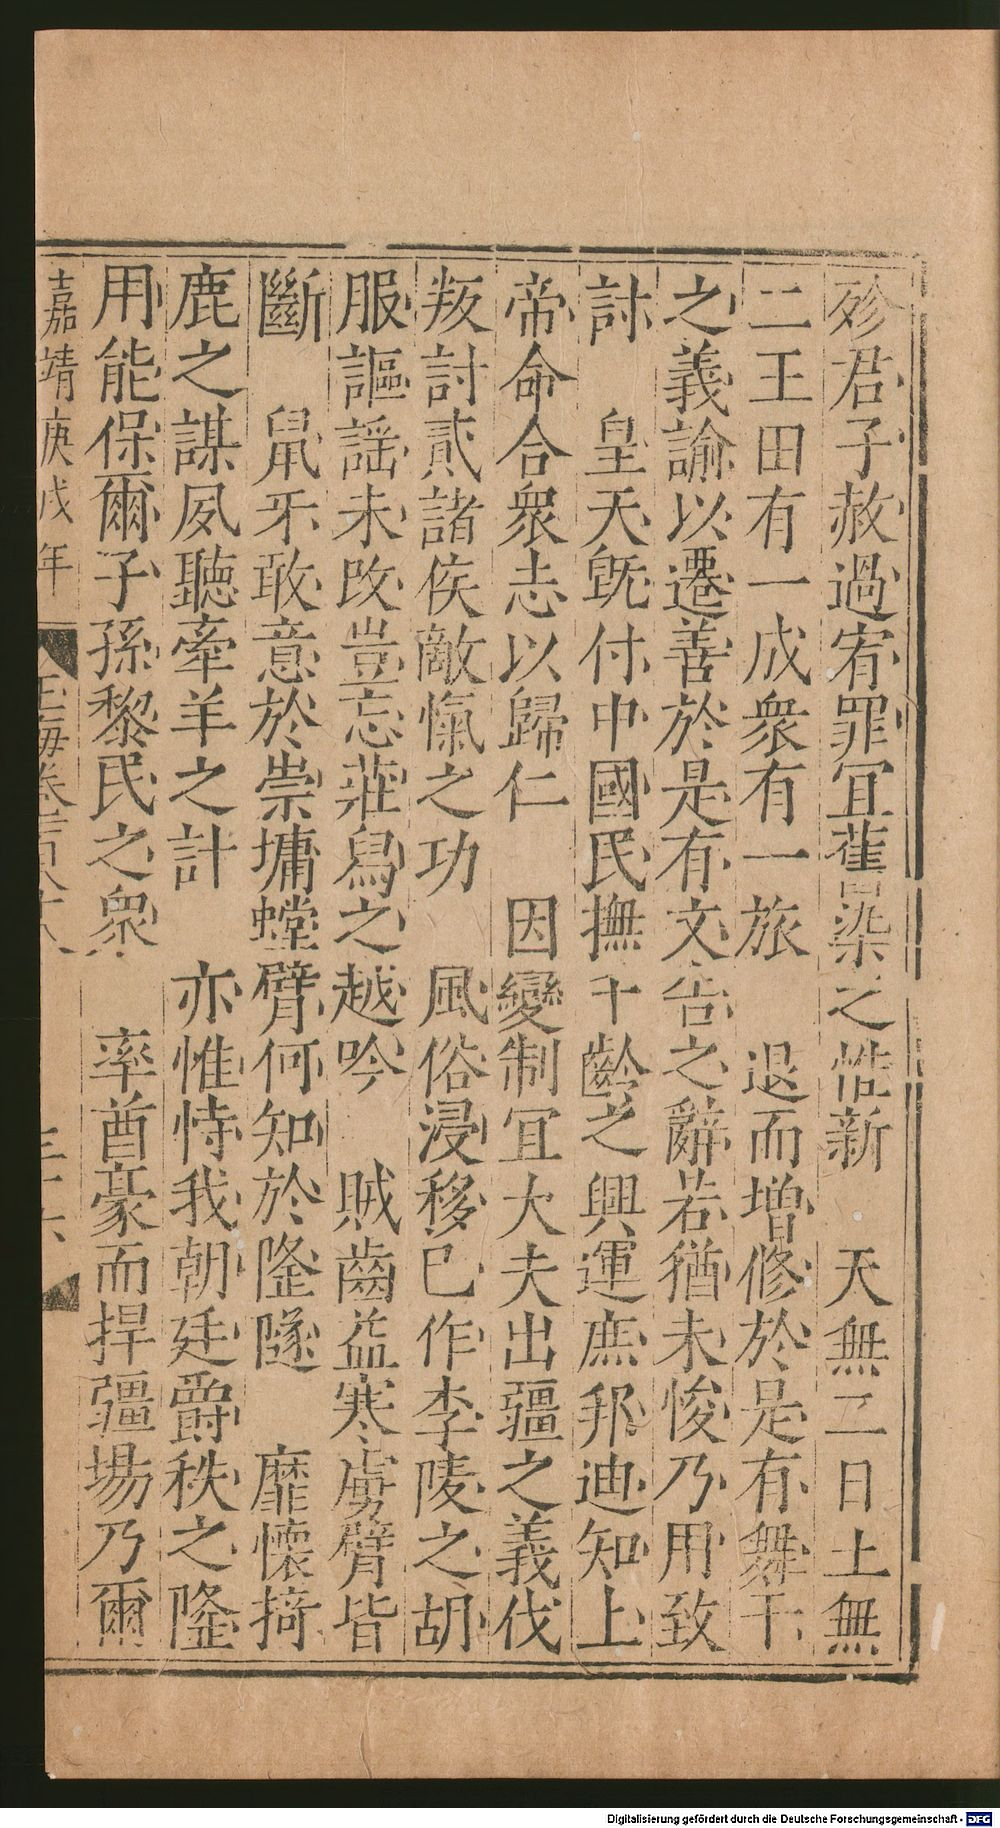 殄君子赦過宥罪冝舊染之惟新　天無二日土無
二王田有一成衆有一旅　退而增修於是有舞干
之義諭以遷善於是有文告之辭若猶未悛乃用致
討　皇天旣付中國民撫千齡之興運庶邦迪知上
帝命合衆志以歸仁　因變制冝大夫出疆之義伐
叛討貳諸侯敵愾之功　風俗浸移已作李陵之胡
服謳謡未改豈忘莊舃之越吟　賊齒益寒虜臂皆
斷　鼠牙敢意於崇墉螳臂何知於隆隧　靡懷掎
鹿之謀夙聽牽羊之計　亦惟恃我朝廷爵秩之隆
用能保爾子孫黎民之衆　率酋豪而捍疆場乃爾
嘉靖庚戌年　玉海卷二百八十八　三十六
Digitalisierung gefördert durch die Deutsche Forschungsgemeinschaft - DFG